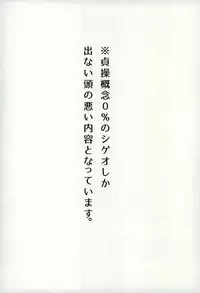 ※貞操概念０％のシゲオしか
出ない頭の悪い内容となっています。